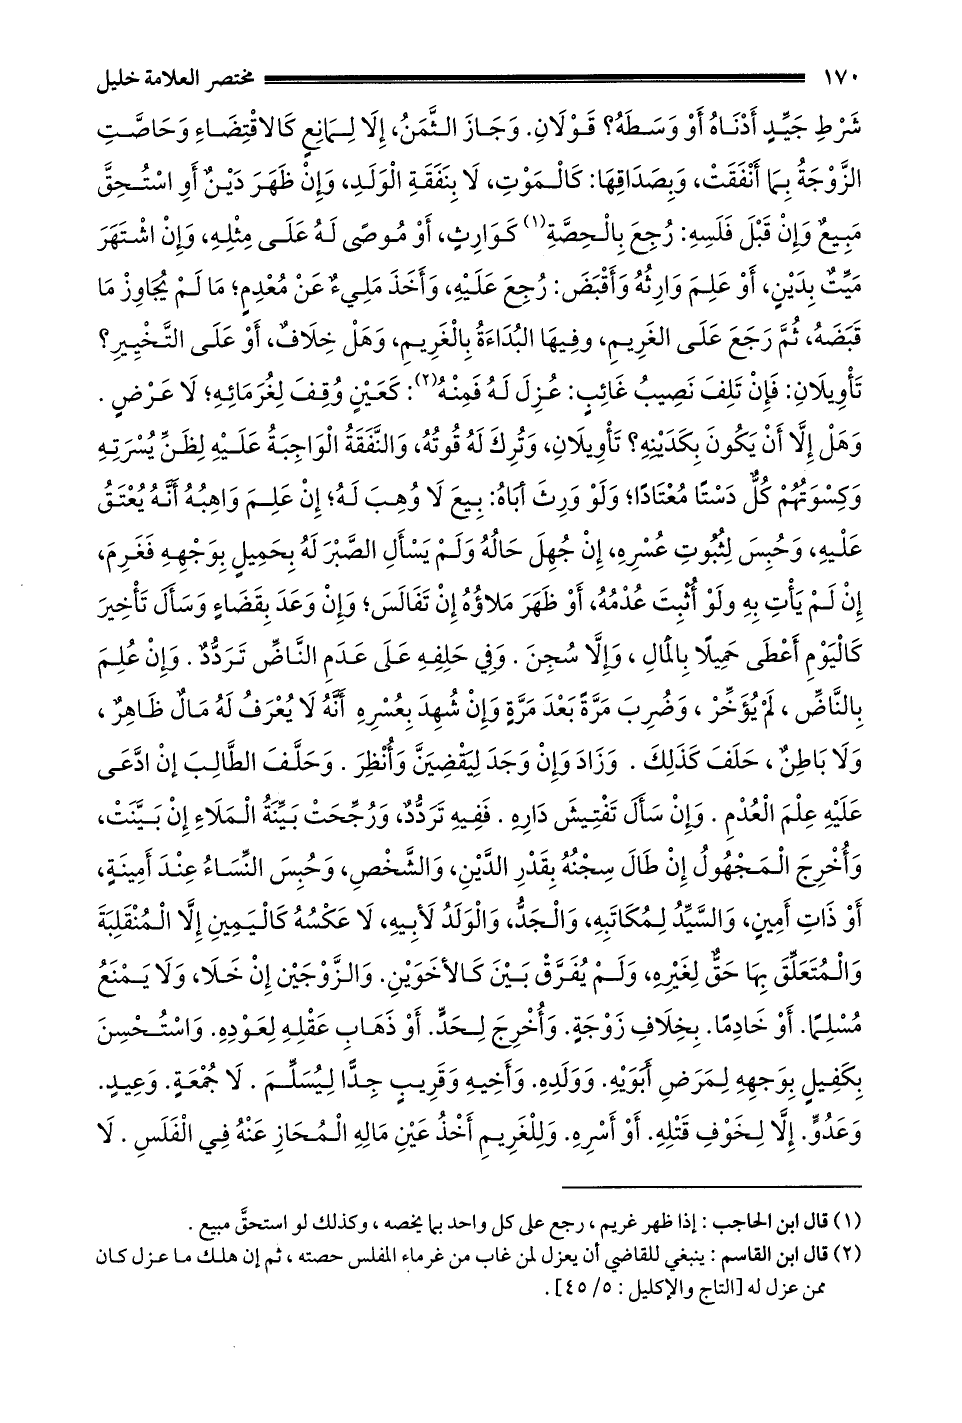 ١٧٠ مختصر العلامة خليل
شَرْطِ جَيِّدٍ أَدْنَاهُ أَوْ وَسَطَهُ؟ قَوْلَانِ. وَجَازَ الثَّمَنُ، إِلَا لِمَانِعٍ كَالاقْتِضَاءِ وَحَاصَّتِ
الزَّوْجَةُ بِمَا أَنْفَقَتْ، وَبِصَدَاقِهَا: كَالْمَوْتِ، لَا بِنَفَقَةِ الْوَلَدِ، وَإِنْ ظَهَرَ دَيْنٌ أَوِ اسْتُحِقَّ
مَبِيعٌ وَإِنْ قَبْلَ فَلَسِهِ: رُجِعَ بِالْحِصَّةِ(١) كَوَارِثٍ، أَوْ مُوصًى لَهُ عَلَى مِثْلِهِ، وَإِنْ اشْتَهَرَ
مَيِّتٌ بِدَيْنٍ، أَوْ عَلِمَ وَارِثُهُ وَأَقْبَضَ: رُجِعَ عَلَيْهِ، وَأَخَذَ مَلِيءٌ عَنْ مُعْدِمٍ؛ مَا لَمْ يُجَاوِزْ مَا
قَبَضَهُ، ثُمَّ رَجَعَ عَلَى الغَرِيمِ، وفِيهَا البُدَاءَةُ بِالْغَرِيمِ، وَهَلْ خِلَافٌ، أَوْ عَلَى التَّخْيِيرِ؟
تَأْوِيلَانِ: فَإِنْ تَلِفَ نَصِيبُ غَائِبٍ: عُزِلَ لَهُ فَمِنْهُ(٢): كَعَيْنٍ وُقِفَ لِغُرَمَائِهِ؛ لَا عَرْضٍ .
وَهَلْ إِلَّا أَنْ يَكُونَ بِكَدَيْنِهِ؟ تَأْوِيلَانِ، وَتُرِكَ لَهُ قُوتُهُ، وَالنَّفَقَةُ الْوَاجِبَةُ عَلَيْهِ لِظَنِّ يُسْرَتِهِ
وَكِسْوَتُهُمْ كُلٌّ دَسْتًا مُعْتَادًا؛ وَلَوْ وَرِثَ أَبَاهُ: بِيعَ لَا وُهِبَ لَهُ؛ إِنْ عَلِمَ وَاهِبُهُ أَنَّهُ يُعْتَقُ
عَلَيْهِ، وَحُبِسَ لِثُبُوتِ عُسْرِهِ، إِنْ جُهِلَ حَالُهُ وَلَمْ يَسْأَلِ الصَّبْرَ لَهُ بِحَمِيلٍ بِوَجْهِهِ فَغَرِمَ،
إِنْ لَمْ يَأْتِ بِهِ ولَوْ أُثْبِتَ عُدْمُهُ، أَوْ ظَهَرَ مَلَاؤُهُ إِنْ تَفَالَسَ؛ وَإِنْ وَعَدَ بِقَضَاءٍ وَسَأَلَ تَأْخِيرَ
كَالْيَوْمِ أَعْطَى حَمِيلًا بِالْمَالِ ، وَإِلَّا سُجِنَ . وَفِي حَلِفِهِ عَلَى عَدَمِ النَّاضِّ تَرَدُّدٌ . وَإِنْ عُلِمَ
بِالنَّاضِّ ، لَمْ يُؤَخَّرْ ، وَضُرِبَ مَرَّةً بَعْدَ مَرَّةٍ وَإِنْ شُهِدَ بِعُسْرِهِ أَنَّهُ لَا يُعْرَفُ لَهُ مَالٌ ظَاهِرٌ ،
وَلَا بَاطِنٌ ، حَلَفَ كَذَلِكَ . وَزَادَ وَإِنْ وَجَدَ لِيَقْضِيَنَّ وَأُنْظِرَ . وَحَلَّفَ الطَّالِبَ إِنْ ادَّعَى
عَلَيْهِ عِلْمَ الْعُدْمِ . وَإِنْ سَأَلَ تَفْتِيشَ دَارِهِ . فَفِيهِ تَرَدُّدٌ، وَرُجِّحَتْ بَيِّنَةُ الْمَلَاءِ إِنْ بَيَّنَتْ،
وَأُخْرِجَ الْمَجْهُولُ إِنْ طَالَ سِجْنُهُ بِقَدْرِ الدَّيْنِ، وَالشَّخْصِ، وَحُبِسَ النِّسَاءُ عِنْدَ أَمِينَةٍ،
أَوْ ذَاتِ أَمِينٍ، وَالسَّيِّدُ لِمُكَاتَبِهِ، وَالْجَدُّ، وَالْوَلَدُ لأَبِيهِ، لَا عَكْسُهُ كَالْيَمِينِ إِلَّا الْمُنْقَلِبَةَ
وَالْمُتَعَلِّقَ بِهَا حَقٌّ لِغَيْرِهِ، وَلَمْ يُفَرَّقْ بَيْنَ كَالأَخَوَيْنِ. وَالزَّوْجَيْنِ إِنْ خَلَا، وَلَا يَمْنَعُ
مُسْلِمًا. أَوْ خَادِمًا. بِخِلَافِ زَوْجَةٍ. وَأُخْرِجَ لِحَدٍّ. أَوْ ذَهَابِ عَقْلِهِ لِعَوْدِهِ. وَاسْتُحْسِنَ
بِكَفِيلٍ بِوَجْهِهِ لِمَرَضِ أَبَوَيْهِ. وَوَلَدِهِ. وَأَخِيهِ وَقَرِيبٍ جِدًّا لِيُسَلِّمَ . لَا جُمُعَةٍ. وَعِيدٍ.
وَعَدُوٍّ. إِلَّا لِخَوْفِ قَتْلِهِ. أَوْ أَسْرِهِ. وَلِلْغَرِيمِ أَخْذُ عَيْنِ مَالِهِ الْمُحَازِ عَنْهُ فِي الْفَلَسِ . لَا
(١) قال ابن الحاجب : إذا ظهر غريم ، رجع على كل واحد بما يخصه ، وكذلك لو استحقَّ مبيع .
(٢) قال ابن القاسم : ينبغي للقاضي أن يعزل لمن غاب من غرماء المفلس حصته ، ثم إن هلك ما عزل كان
ممن عزل له [التاج والإكليل : ٥/ ٤٥] .